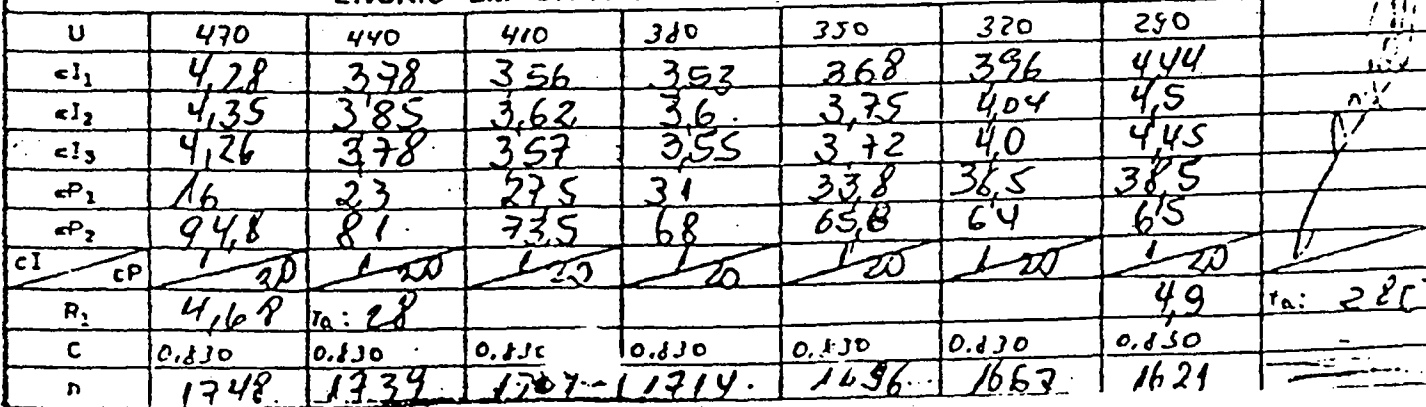 U 470 440 410 380 350 320 290
cI1 4,28 3,78 3,56 3,53 3,68 3,96 4,44
cI2 4,35 3,85 3,62 3,6 3,75 4,04 4,5
cI3 4,26 3,78 3,57 3,55 3,72 4,0 4,45
cP1 16 23 27,5 31 33,8 36,5 38,5
cP2 94,8 81 73,5 68 65,8 64 65
cI cP 1 20 1 20 1 20 1 20 1 20 1 20 1 20
R1 4,68 Ta: 28 4,9 Ta: 28
C 0.830 0.830 0.830 0.830 0.830 0.830 0.830
n 1748 1739 1714 1696 1667 1621